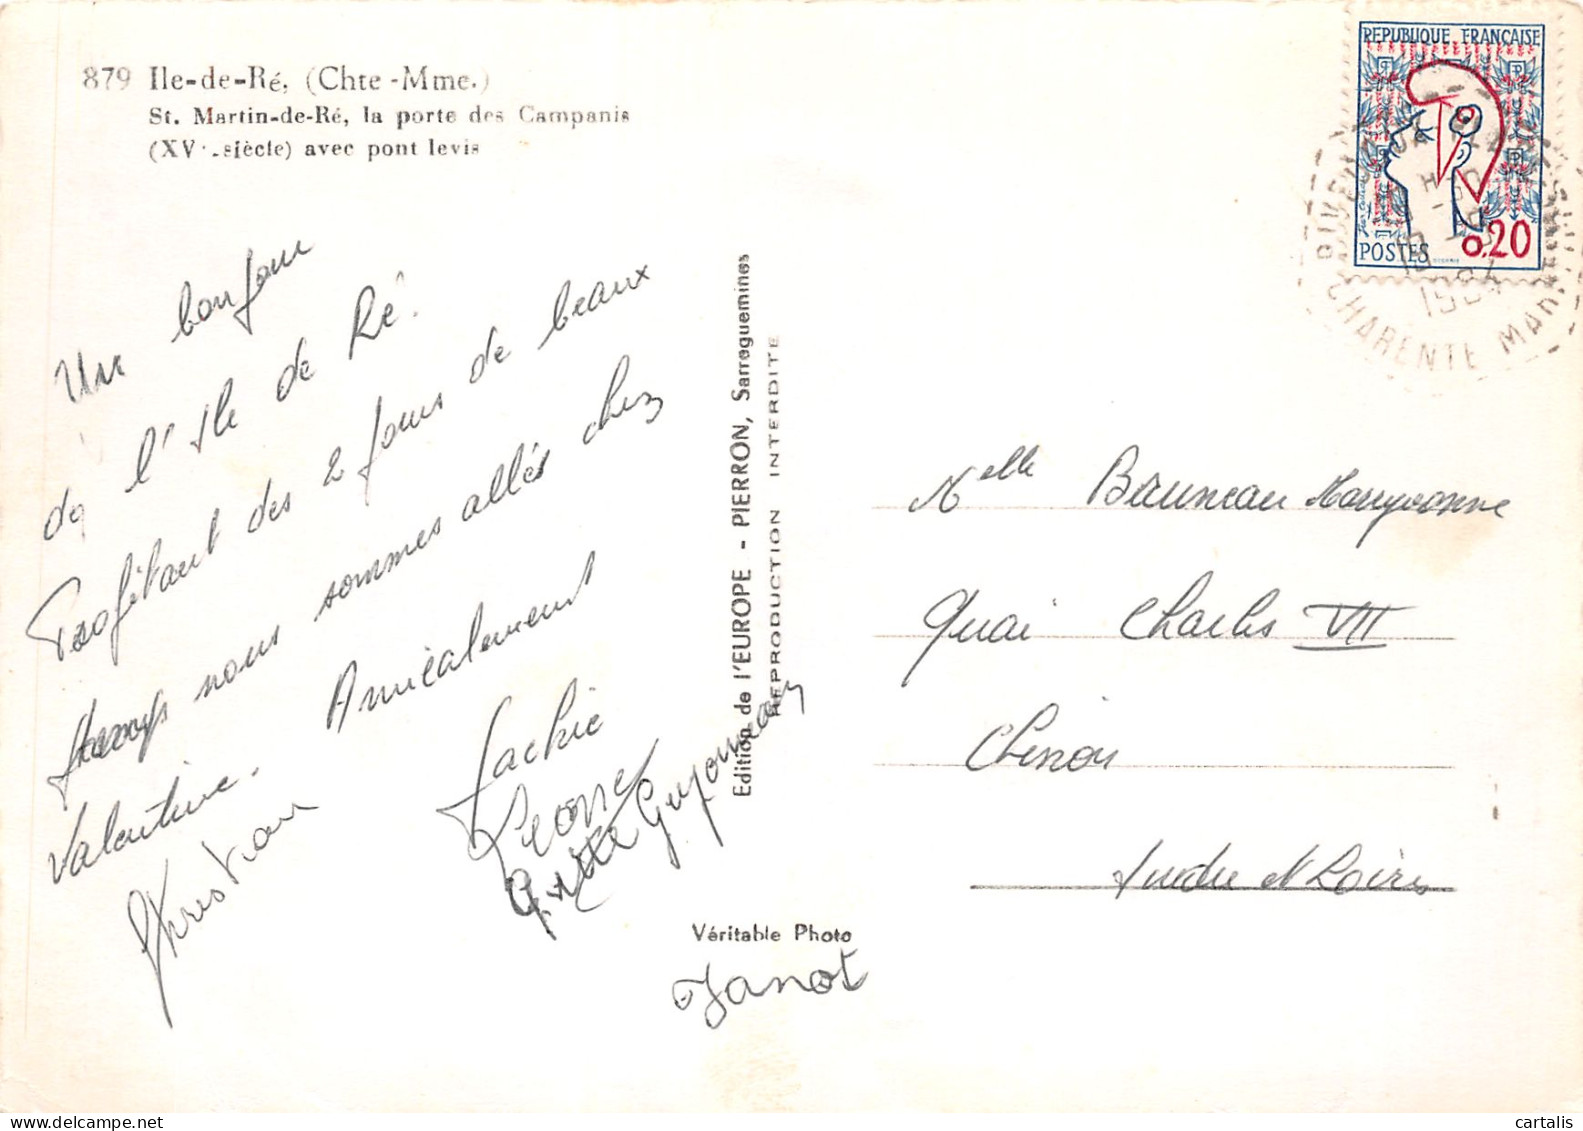 879 Ile-de-Ré, (Chte -Mme.)
St. Martin-de-Ré, la porte des Campanis
(XV .siècle) avec pont levis
Un bonjour
de l'Ile de Ré.
Profitant des 2 jours de beaux
temps nous sommes allés chez
Valentine.
Amicalement
Jackie
Christian
Guyonneau
Janot
Edition de l'EUROPE - PIERRON, Sarreguemines
REPRODUCTION INTERDITE
Véritable Photo
REPUBLIQUE FRANÇAISE
POSTES 0,20
CHARENTE MARITIME
Melle Bruneau Maryvonne
Quai Charles VII
Chinon
Indre et Loire
cartalis
www.delcampe.net